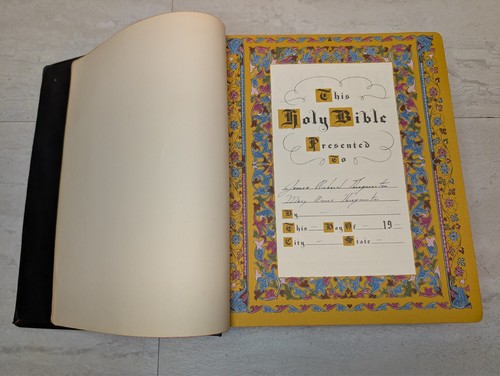 This
Holy Bible
Presented
to
James Robert
Mary Anne
By
This Day Of 19
City State